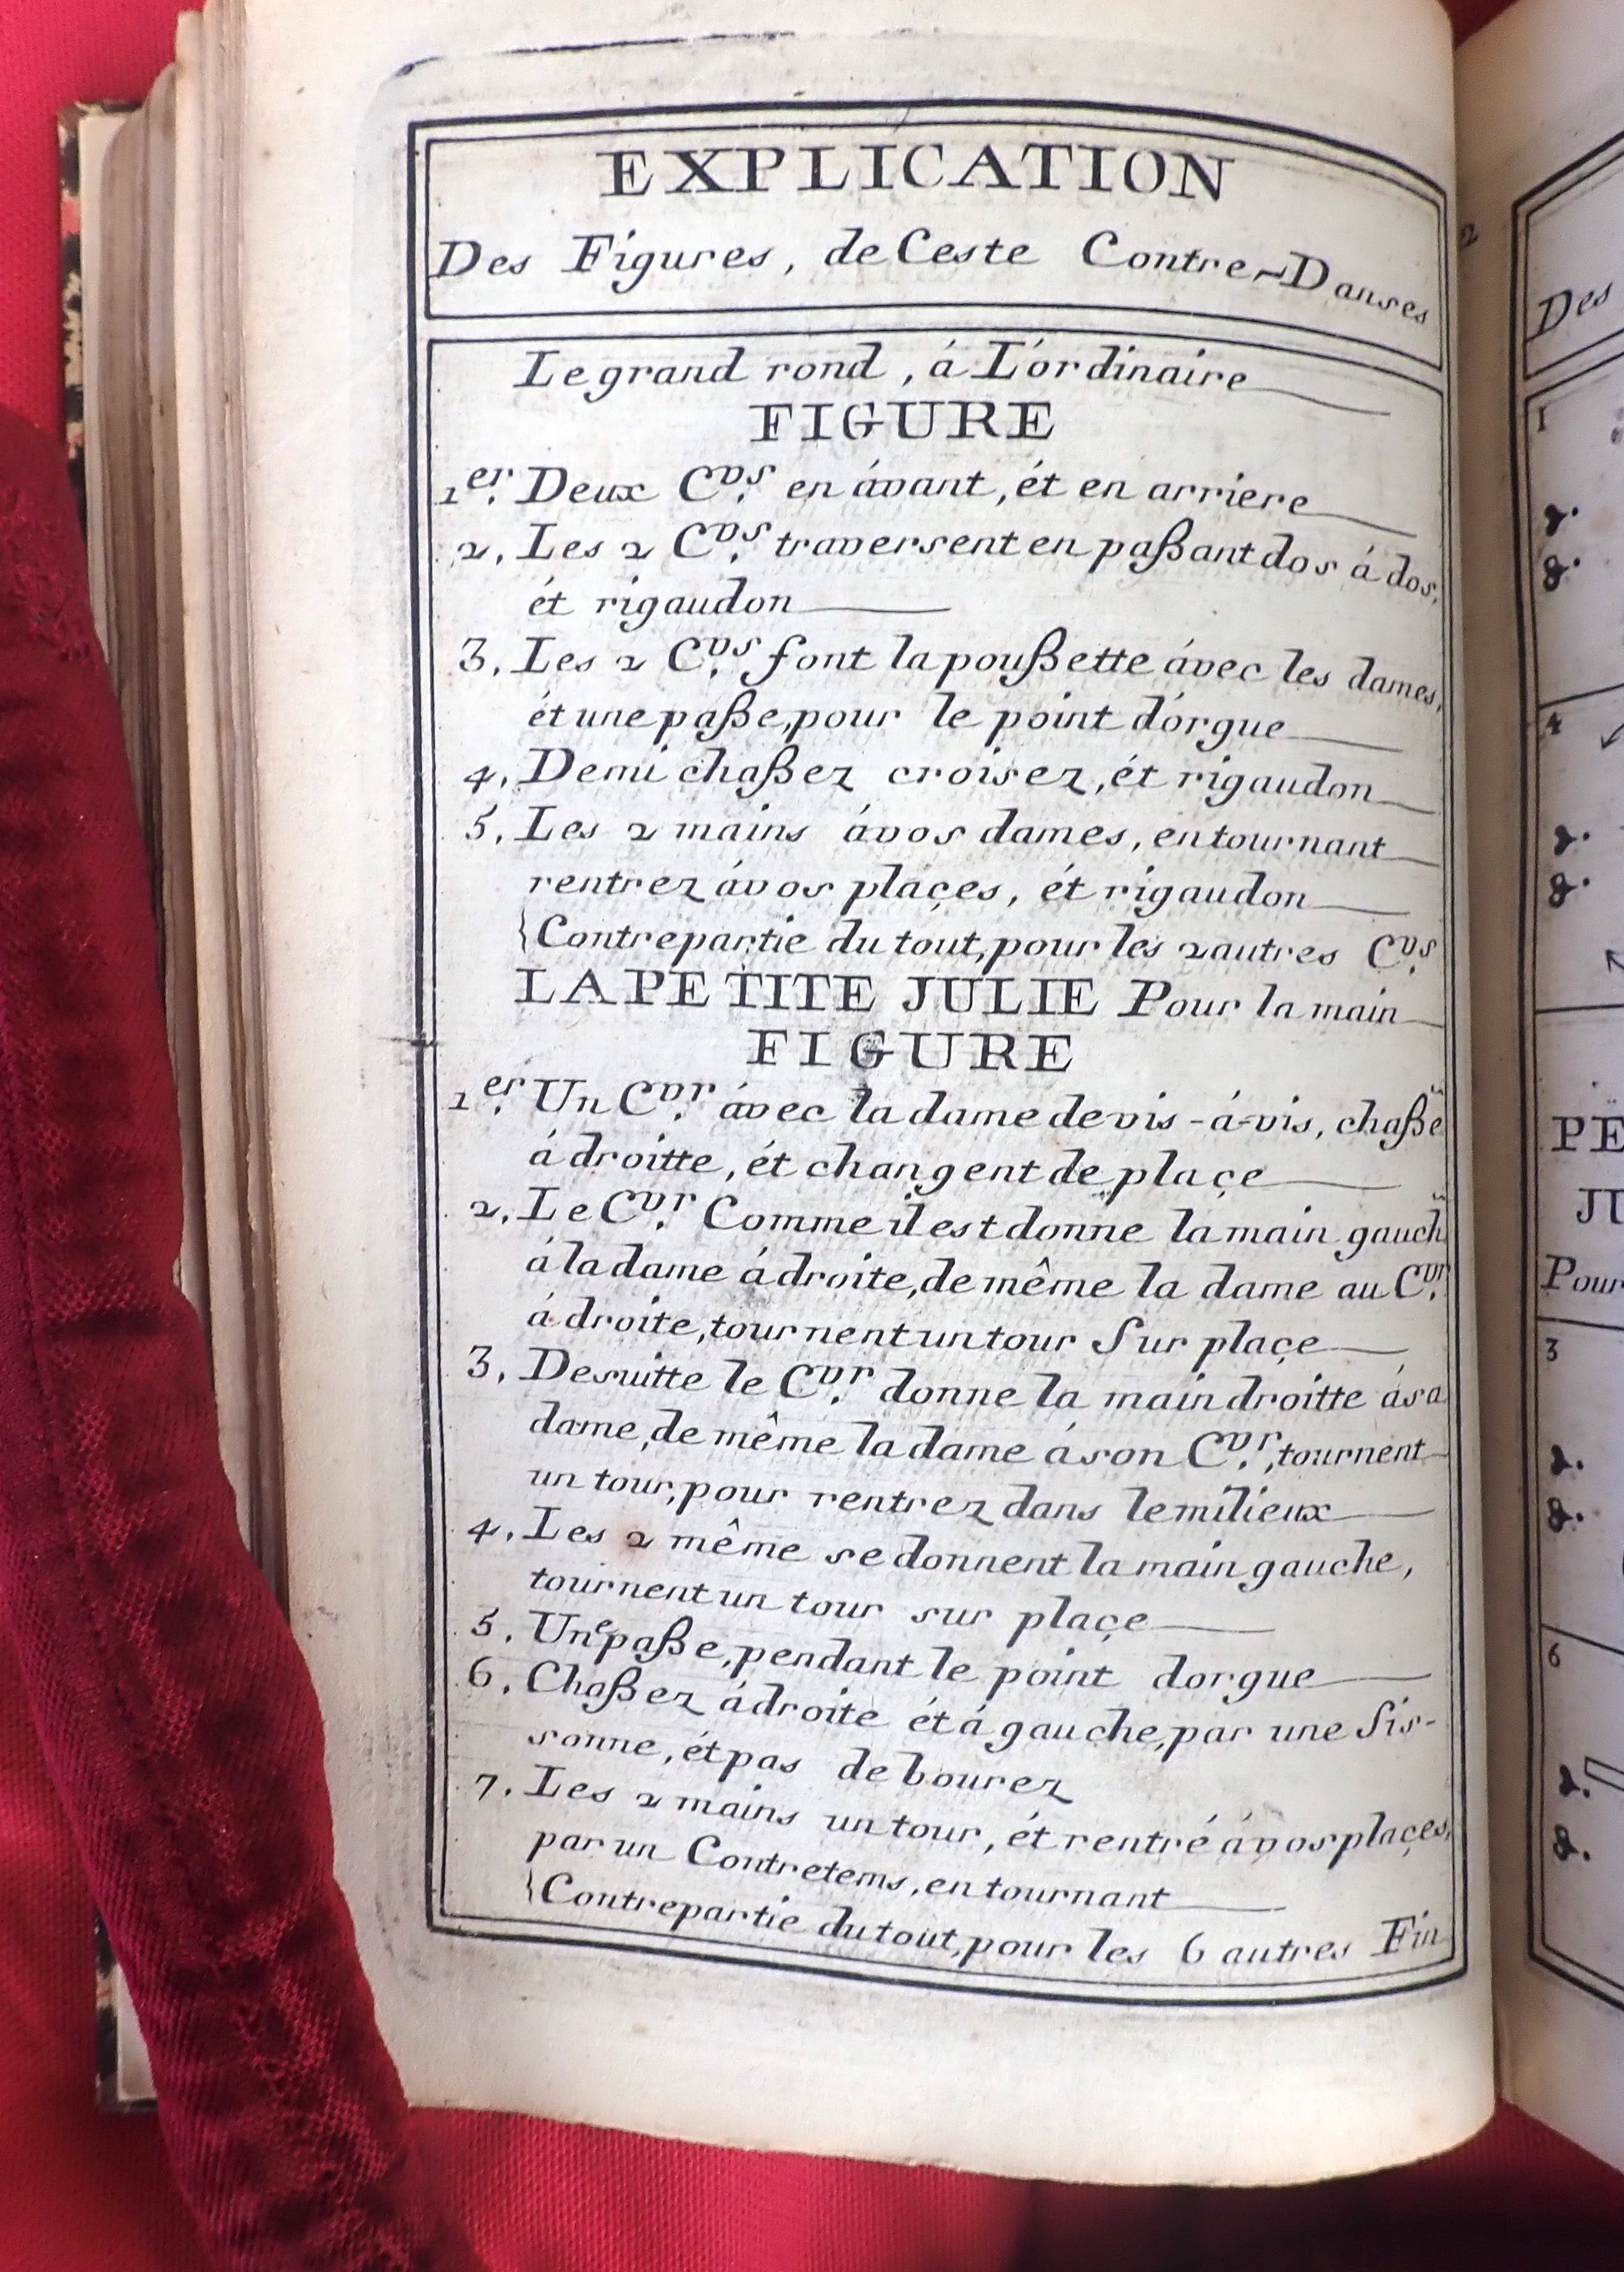 EXPLICATION
Des Figures, de Ceste Contre-Danses
Le grand rond, á L'ordinaire
FIGURE
1er. Deux Cvs. en ávant, ét en arriere
2, Les 2 Cvs. traversent en paßant dos á dos,
ét rigaudon
3, Les 2 Cvs. font la poußette ávec les dames,
ét une paße, pour le point d'orgue
4, Demi chaßez croisez, ét rigaudon
5, Les 2 mains ávos dames, en tournant
rentrez ávos plaçes, ét rigaudon
{Contrepartie du tout, pour les 2 autres Cvs.
LA PETITE JULIE Pour la main
FIGURE
1er. Un Cvr. ávec la dame de vis-á-vis, chaße
á droitte, ét changent de plaçe
2, Le Cvr. Comme il est donne la main gauch
á la dame á droite, de même la dame au Cvr.
á droite, tournent un tour Sur plaçe
3, Desuitte le Cvr. donne la main droitte ása
dame, de même la dame á son Cvr., tournent
un tour, pour rentrez dans le milieux
4, Les 2 même se donnent la main gauche,
tournent un tour sur plaçe
5, Une paße, pendant le point dorgue
6, Chaßez á droite ét á gauche, par une Sis-
sonne, ét pas de bourez
7. Les 2 mains un tour, ét rentré ávos plaçes,
par un Contretems, en tournant
{Contrepartie du tout, pour les 6 autres Fin
2
Des
1
2.
8.
4
2.
8.
PE
JU
Pour
3
2.
8.
6
2.
8.